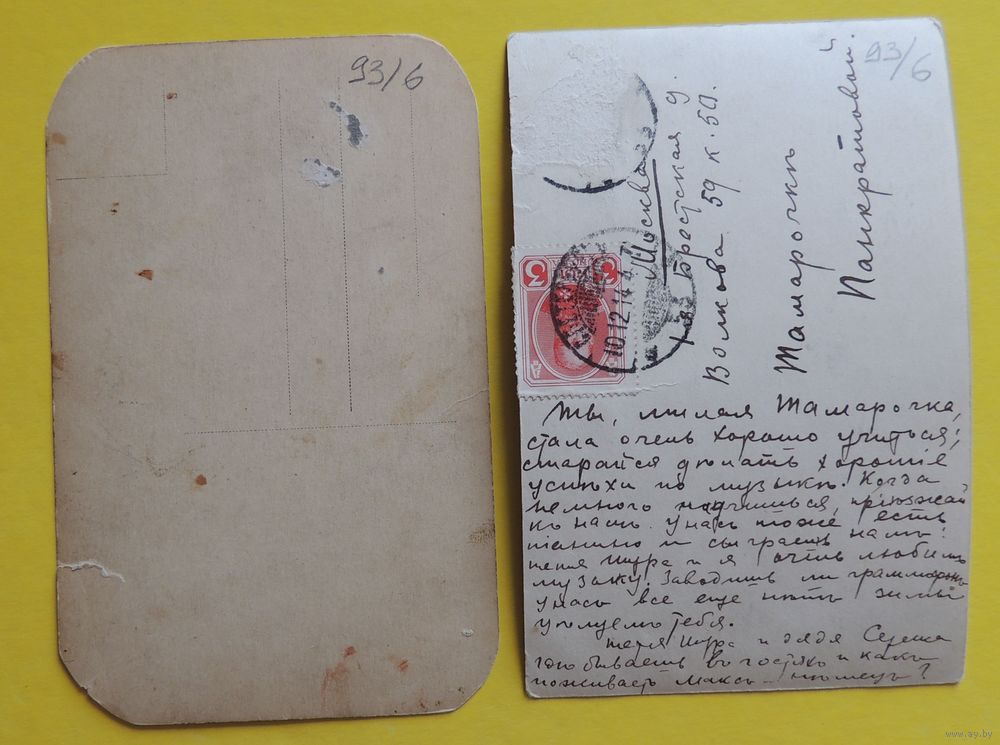 93/6
93/6
Москва
Брестская у.
Волкова 59 к. 50.
Тамарочкѣ
Панкратовой.
3
3
10.12.14
Ты, милая Тамарочка,
стала очень хорошо учиться;
старайся дѣлать хорошіе
успѣхи по музыкѣ. Когда
немного научишься, пріѣзжай
къ намъ. У насъ тоже есть
піанино и сыграешь намъ:
тетя Шура и я очень любимъ
музыку. Заводишь ли граммофонъ
у насъ все еще нѣтъ зимы
цѣлуемъ тебя.
тетя Шура и дядя Сережа
бываетъ въ гостяхъ и какъ
поживаетъ Максъ нѣмецъ?
www.ay.by